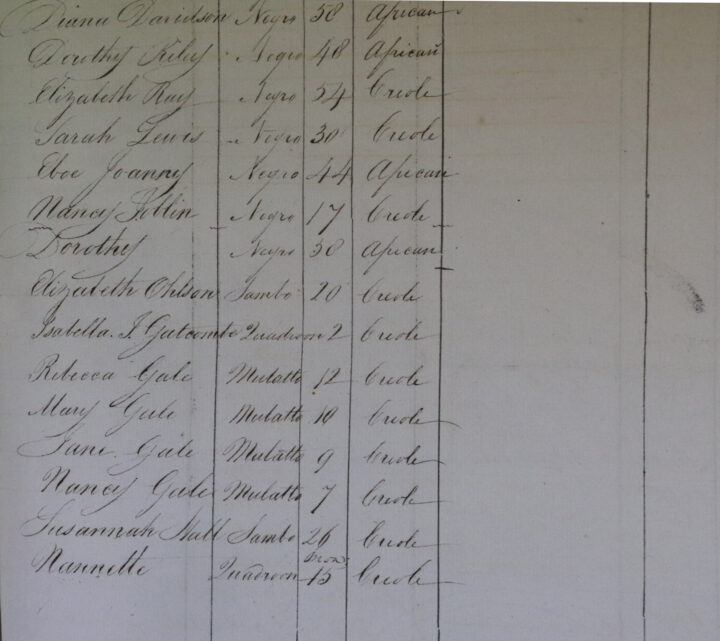 Diana Davidson Negro 50 African
Dorothy Negro 48 African
Elizabeth Ray Negro 54 Creole
Sarah Lewis Negro 30 Creole
Eboe Joanny Negro 44 African
Nancy Negro 17 Creole
Dorothy Negro 50 African
Elizabeth Ohlson Sambo 20 Creole
Isabella. J. Gatcombe Quadroon 2 Creole
Rebecca Gale Mulatto 12 Creole
Mary Gale Mulatto 10 Creole
Jane Gale Mulatto 9 Creole
Nancy Gale Mulatto 7 Creole
Susannah Hall Sambo 26 Creole
Nannette Quadroon 15 Creole